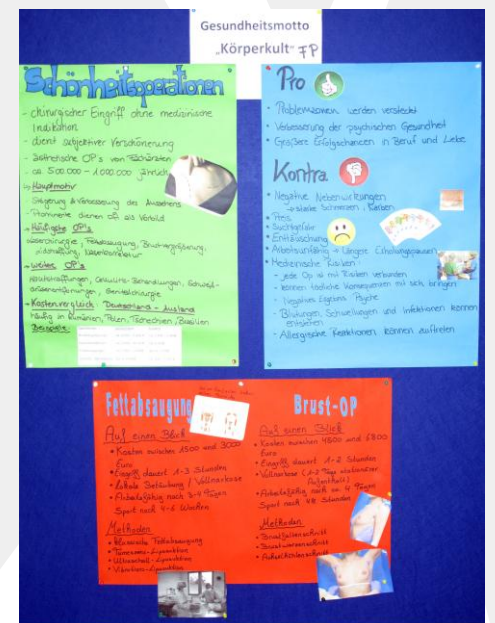 Gesundheitsmotto
„Körperkult“ FP
Schönheitsoperationen
- chirurgischer Eingriff ohne medizinische
Indikation
- dient subjektiver Verschönerung
- ästhetische OP's von Fachärzten
- ca. 500.000 - 1.000.000 jährlich
→ Hauptmotiv
Steigerung & Verbesserung des Aussehens
- Prominente dienen oft als Vorbild
→ Häufigste OP's
Fettabsaugung, Brustvergrößerung,
→ weitere OP's
→ Kostenvergleich Deutschland - Ausland
häufig in Rumänien, Polen, Tschechien, Brasilien
Beispiele:
Pro
- Problemzonen werden versteckt
- Verbesserung der psychischen Gesundheit
- Größere Erfolgschancen in Beruf und Liebe
Kontra
- Negative Nebenwirkungen
→ starke Schmerzen, Narben
- Preis
- Suchtgefahr
- Enttäuschung
- Arbeitsunfähig → längere Erholungspausen
- Medizinische Risiken:
- jede Op ist mit Risiken verbunden
- können tödliche Konsequenzen mit sich bringen
- Negatives Ergebnis: Psyche
- Blutungen, Schwellungen und Infektionen können
entstehen
- Allergische Reaktionen können auftreten
Fettabsaugung
Auf einen Blick
• Kosten zwischen 1500 und 3000
Euro
• Eingriff dauert 1-3 Stunden
• lokale Betäubung / Vollnarkose
• Arbeitsfähig nach 3-4 Tagen
Sport nach 4-6 Wochen
Methoden
• klassische Fettabsaugung
• Tumeszenz-Liposuktion
• Ultraschall-Liposuktion
• Vibrations-Liposuktion
Brust-OP
Auf einen Blick
• Kosten zwischen 4500 und 6800
Euro
• Eingriff dauert 1-2 Stunden
• Vollnarkose (1-2 Tage stationärer
Aufenthalt)
• Arbeitsfähig nach ca. 4 Tagen
Sport nach Stunden
Methoden
• Brustfaltenschnitt
• Brustwarzenschnitt
• Achselhöhlenschnitt